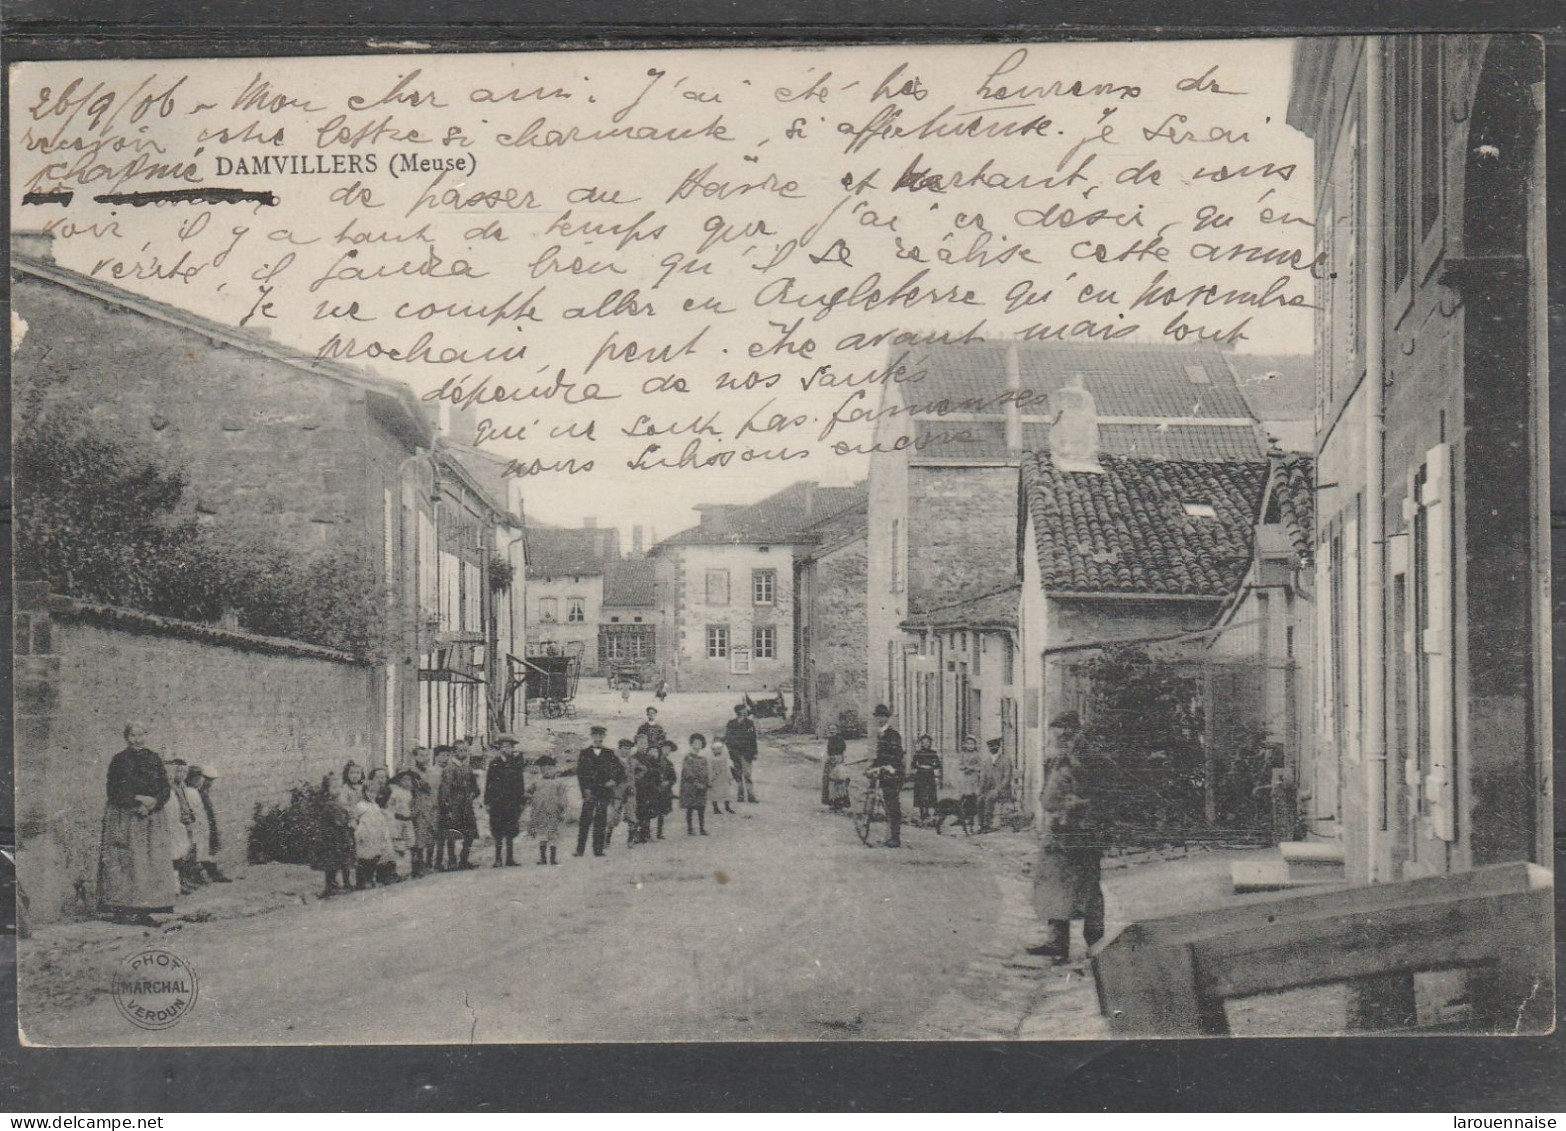 26/9/06 - Mon cher ami. J'ai été très heureux de
recevoir votre lettre si charmante, si affectueuse. Je serai
charmé
DAMVILLERS (Meuse)
de passer au Hâvre et pourtant, de vous
voir, il y a tant de temps que j'ai ce désir, qu'en
vérité, il faudra bien qu'il se réalise cette année.
Je ne compte aller en Angleterre qu'en Novembre
prochain, peut-être avant mais tout
dépendra de nos santés
qui ne sont pas fameuses,
nous subissons encore
PHOT
MARCHAL
VERDUN
larouennaise